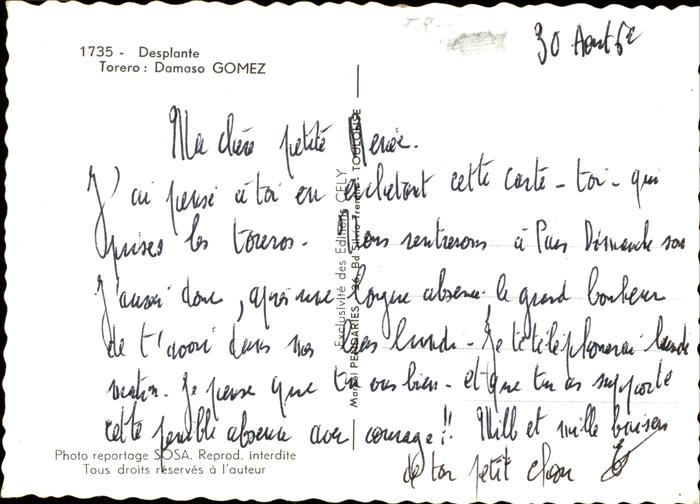 1735 - Desplante
Torero : Damaso GOMEZ
30 Aout 62
Ma chère petite Renée.
J'ai pensé à toi en achetant cette carte - toi - qui
prises les toreros - Nous rentrerons à Paris Dimanche soir
J'aurai donc, après une longue absence le grand bonheur
de t'avoir dans mes bras lundi - Je te téléphonerai lundi
matin. Je pense que tu vas bien - et que tu as supporté
cette pénible absence avec courage !! Mille et mille baisers
de ton petit chou
Exclusivité des Editions CELY
Marcel PENDARIES - 36, Bd TOULOUSE
Photo reportage SOSA. Reprod. interdite
Tous droits réservés à l'auteur